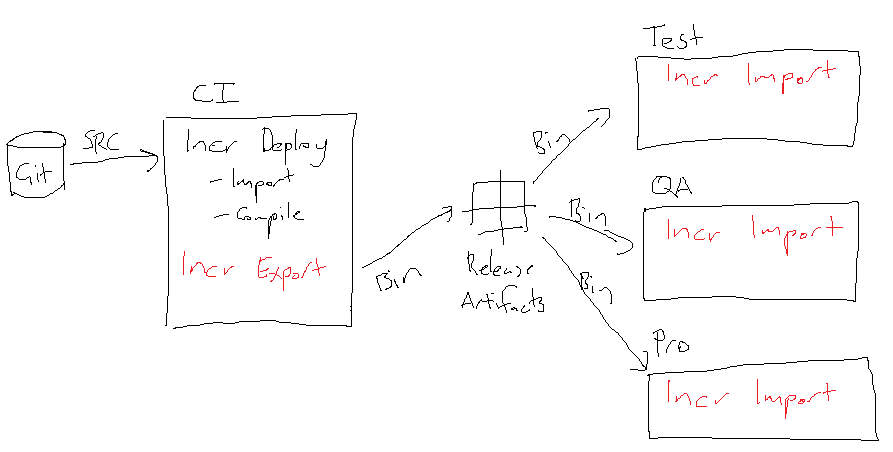 Git
SRC
CI
Incr Deploy
- Import
- Compile
Incr Export
Bin
Release
Artifacts
Bin
Bin
Bin
Test
Incr Import
QA
Incr Import
Pro
Incr Import